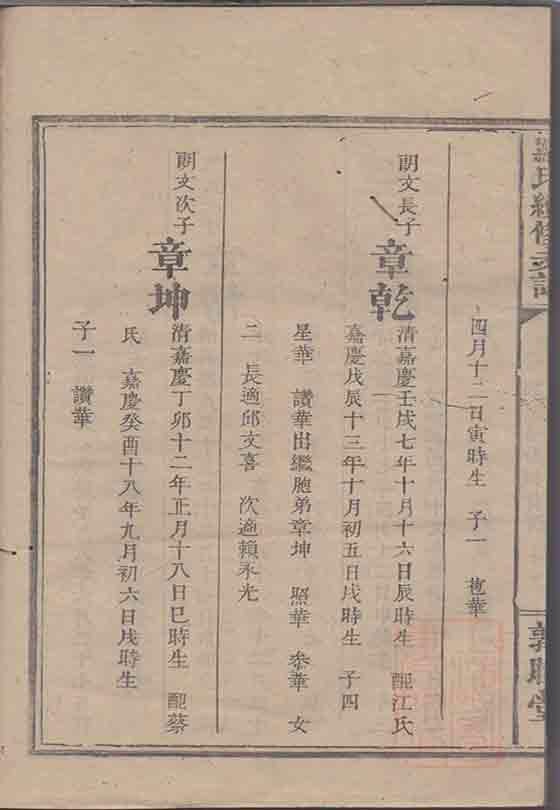 氏續修支譜
敦睦堂
四月十二日寅時生 子一 苞華
朗文長子
章乾
清嘉慶壬戌七年十月十六日辰時生 配江氏
嘉慶戊辰十三年十月初五日戌時生 子四
星華 讚華出繼胞弟章坤 照華 恭華 女
二 長適邱文喜 次適賴永光
朗文次子
章坤
清嘉慶丁卯十二年正月十八日巳時生 配蔡
氏 嘉慶癸酉十八年九月初六日戌時生
子一 讚華